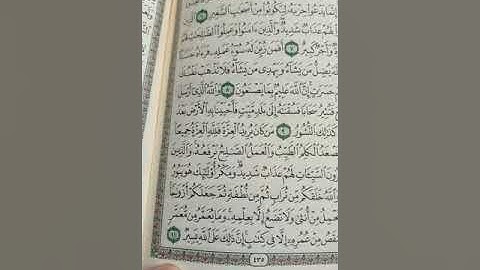 يَدْعُوا۟ حِزْبَهُۥ لِيَكُونُوا۟ مِنْ أَصْحَٰبِ ٱلسَّعِيرِ ٦
لَهُمْ عَذَابٌ شَدِيدٌ وَٱلَّذِينَ ءَامَنُوا۟ وَعَمِلُوا۟ ٱلصَّٰلِحَٰتِ
وَأَجْرٌ كَبِيرٌ ٧ أَفَمَن زُيِّنَ لَهُۥ سُوٓءُ عَمَلِهِۦ فَرَءَاهُ حَسَنًا
يُضِلُّ مَن يَشَآءُ وَيَهْدِى مَن يَشَآءُ فَلَا تَذْهَبْ نَفْسُكَ
حَسَرَٰتٍ إِنَّ ٱللَّهَ عَلِيمٌۢ بِمَا يَصْنَعُونَ ٨ وَٱللَّهُ ٱلَّذِىٓ أَرْسَلَ
فَتُثِيرُ سَحَابًا فَسُقْنَٰهُ إِلَىٰ بَلَدٍ مَّيِّتٍ فَأَحْيَيْنَا بِهِ ٱلْأَرْضَ بَعْدَ
كَذَٰلِكَ ٱلنُّشُورُ ٩ مَن كَانَ يُرِيدُ ٱلْعِزَّةَ فَلِلَّهِ ٱلْعِزَّةُ جَمِيعًا
يَصْعَدُ ٱلْكَلِمُ ٱلطَّيِّبُ وَٱلْعَمَلُ ٱلصَّٰلِحُ يَرْفَعُهُۥ وَٱلَّذِينَ
ٱلسَّيِّـَٔاتِ لَهُمْ عَذَابٌ شَدِيدٌ وَمَكْرُ أُو۟لَٰٓئِكَ هُوَ يَبُورُ
ٱللَّهُ خَلَقَكُم مِّن تُرَابٍ ثُمَّ مِن نُّطْفَةٍ ثُمَّ جَعَلَكُمْ أَزْوَٰجًا
تَحْمِلُ مِنْ أُنثَىٰ وَلَا تَضَعُ إِلَّا بِعِلْمِهِۦ وَمَا يُعَمَّرُ مِن مُّعَمَّرٍ
يُنقَصُ مِنْ عُمُرِهِۦٓ إِلَّا فِى كِتَٰبٍ إِنَّ ذَٰلِكَ عَلَى ٱللَّهِ يَسِيرٌ ١١
٤٣٥